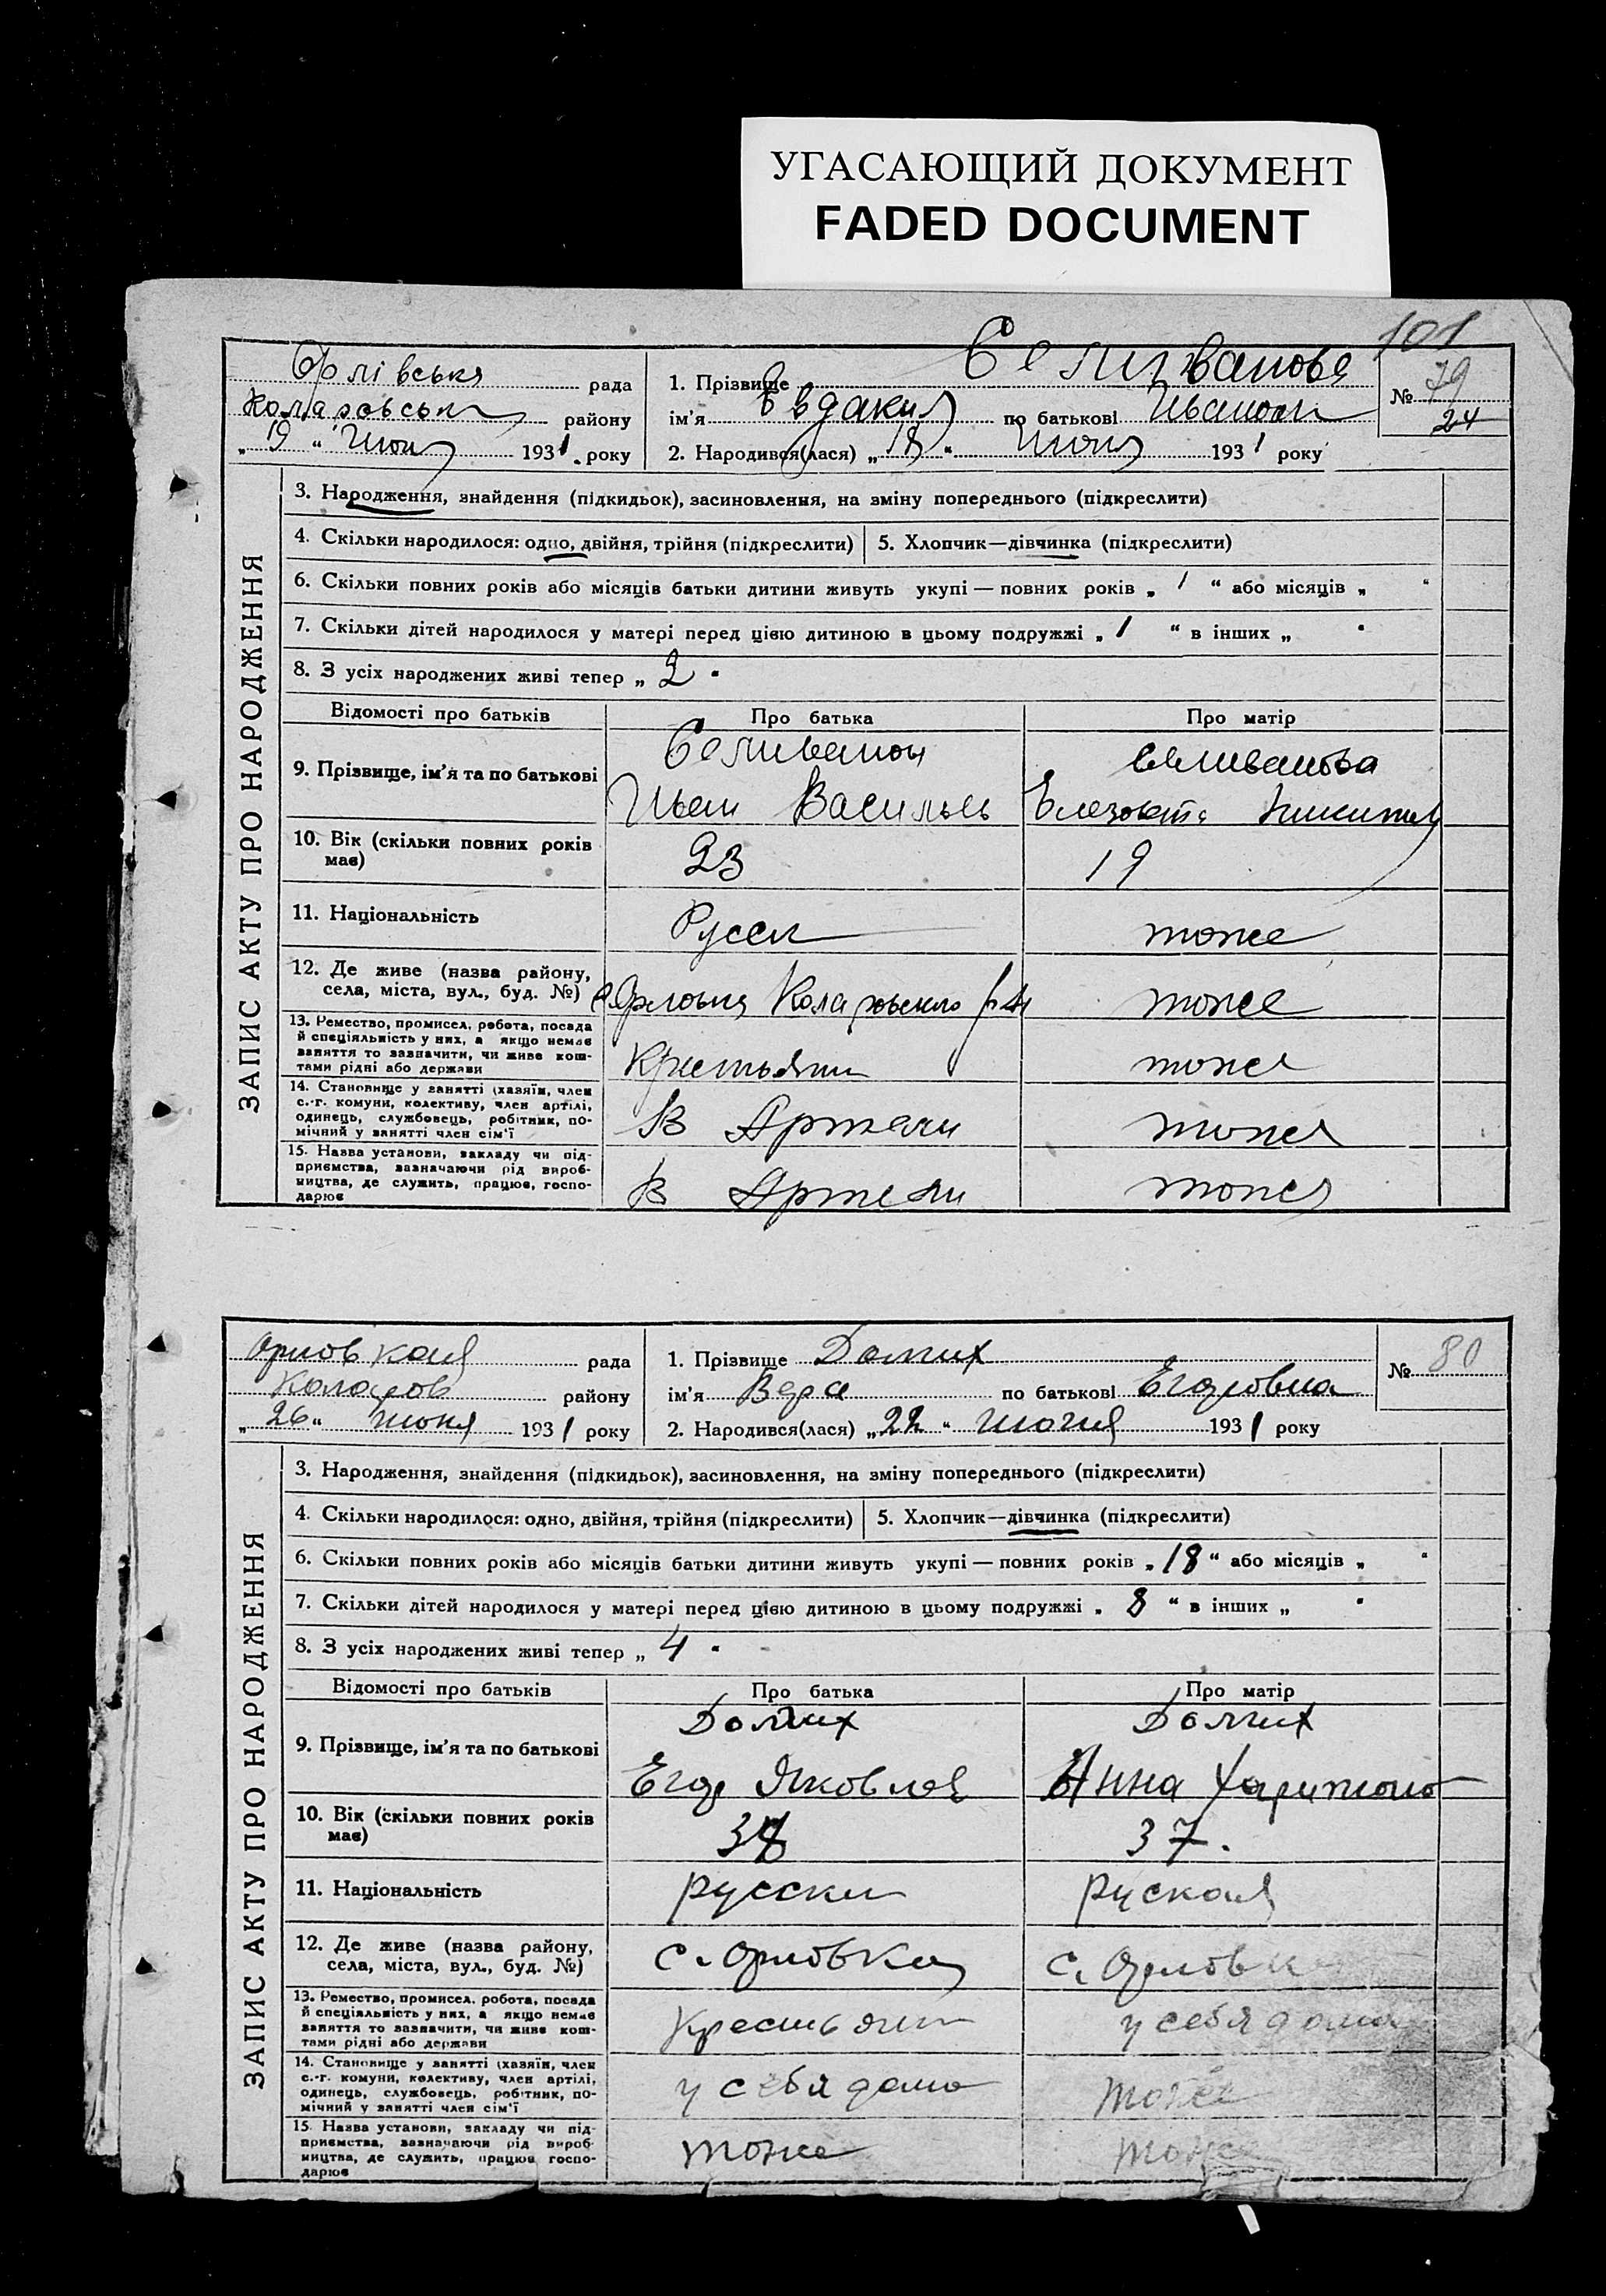 УГАСАЮЩИЙ ДОКУМЕНТ
FADED DOCUMENT
101
Орлівська рада
Коларовськ району
„ 19 “ Июня 1931 . року
1. Прізвище Селиванова
ім’я Евдакия по батькові Ивановн
2. Народився(лася) „ 18 “ Июня 1931 року
№ 79
24
ЗАПИС АКТУ ПРО НАРОДЖЕННЯ
3. Народження, знайдення (підкидьок), засиновлення, на зміну попереднього (підкреслити)
4. Скільки народилося: одно, двійня, трійня (підкреслити) 5. Хлопчик—дівчинка (підкреслити)
6. Скільки повних років або місяців батьки дитини живуть укупі — повних років „ 1 “ або місяців „ “
7. Скільки дітей народилося у матері перед цією дитиною в цьому подружжі „ 1 “ в інших „ “
8. З усіх народжених живі тепер „ 2 “
Відомості про батьків Про батька Про матір
9. Прізвище, ім’я та по батькові
Селиванов
Иван Васильев
Селиванова
Елезовета Никитич
10. Вік (скільки повних років
має)
23 19
11. Національність Русск тоже
12. Де живе (назва району,
села, міста, вул., буд. №)
с. Орловка Коларовського р-н тоже
13. Ремество, промисел, робота, посада
й спеціяльність у них, а якщо немає
заняття то зазначити, чи живе кош-
тами рідні або держави
Крестьянин тоже
14. Становище у занятті (хазяїн, член
с.-г. комуни, колективу, член артілі,
одинець, службовець, робітник, по-
мічний у занятті член сім’ї
В Артели тоже
15. Назва установи, закладу чи під-
приємства, зазначаючи рід вироб-
ництва, де служить, працює, госпо-
дарює
В Артели тоже
Орловкая рада
Коларов району
„ 26 “ июня 1931 року
1. Прізвище Долгих
ім’я Вера по батькові Егоровна
2. Народився(лася) „ 22 “ июня 1931 року
№ 80
ЗАПИС АКТУ ПРО НАРОДЖЕННЯ
3. Народження, знайдення (підкидьок), засиновлення, на зміну попереднього (підкреслити)
4. Скільки народилося: одно, двійня, трійня (підкреслити) 5. Хлопчик—дівчинка (підкреслити)
6. Скільки повних років або місяців батьки дитини живуть укупі — повних років „ 18 “ або місяців „ “
7. Скільки дітей народилося у матері перед цією дитиною в цьому подружжі „ 8 “ в інших „ “
8. З усіх народжених живі тепер „ 4 “
Відомості про батьків Про батька Про матір
9. Прізвище, ім’я та по батькові
Долгих
Егор Яковлев
Долгих
Анна Харитоно
10. Вік (скільки повних років
має)
38 37.
11. Національність русски руская
12. Де живе (назва району,
села, міста, вул., буд. №)
с. Орловка с. Орловка
13. Ремество, промисел, робота, посада
й спеціяльність у них, а якщо немає
заняття то зазначити, чи живе кош-
тами рідні або держави
Крестьянин у себя дома
14. Становище у занятті (хазяїн, член
с.-г. комуни, колективу, член артілі,
одинець, службовець, робітник, по-
мічний у занятті член сім’ї
у себя дома тоже
15. Назва установи, закладу чи під-
приємства, зазначаючи рід вироб-
ництва, де служить, працює, госпо-
дарює
тоже тоже